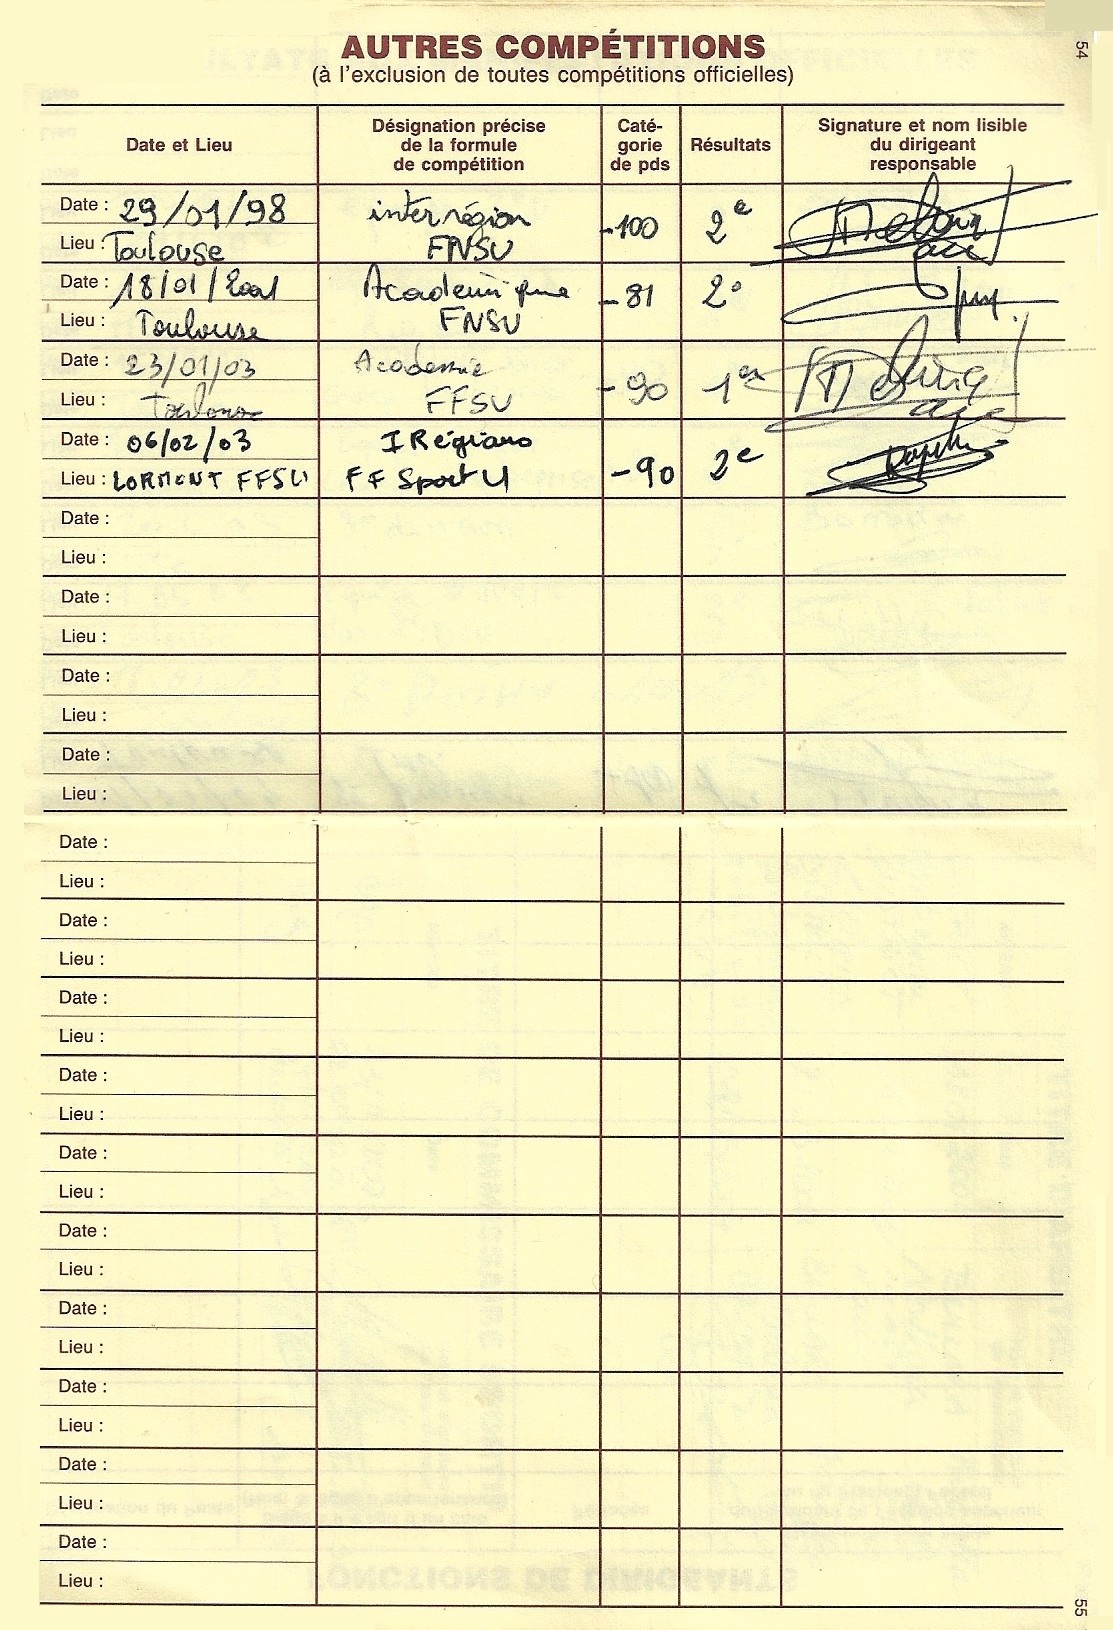 54
AUTRES COMPÉTITIONS
(à l'exclusion de toutes compétitions officielles)
Date et Lieu
Désignation précise
de la formule
de compétition
Caté-
gorie
de pds
Résultats
Signature et nom lisible
du dirigeant
responsable
Date : 29/01/98
Lieu : Toulouse
interrégion
FNSU
-100
2e
Date : 18/01/2001
Lieu : Toulouse
Académique
FNSU
-81
2e
Date : 23/01/03
Lieu : Toulouse
Academie
FFSU
-90
1er
Date : 06/02/03
Lieu : LORMONT FFSU
I Régions
FF Sport U
-90
2e
Date :
Lieu :
Date :
Lieu :
Date :
Lieu :
Date :
Lieu :
Date :
Lieu :
Date :
Lieu :
Date :
Lieu :
Date :
Lieu :
Date :
Lieu :
Date :
Lieu :
Date :
Lieu :
Date :
Lieu :
Date :
Lieu :
Date :
Lieu :
55